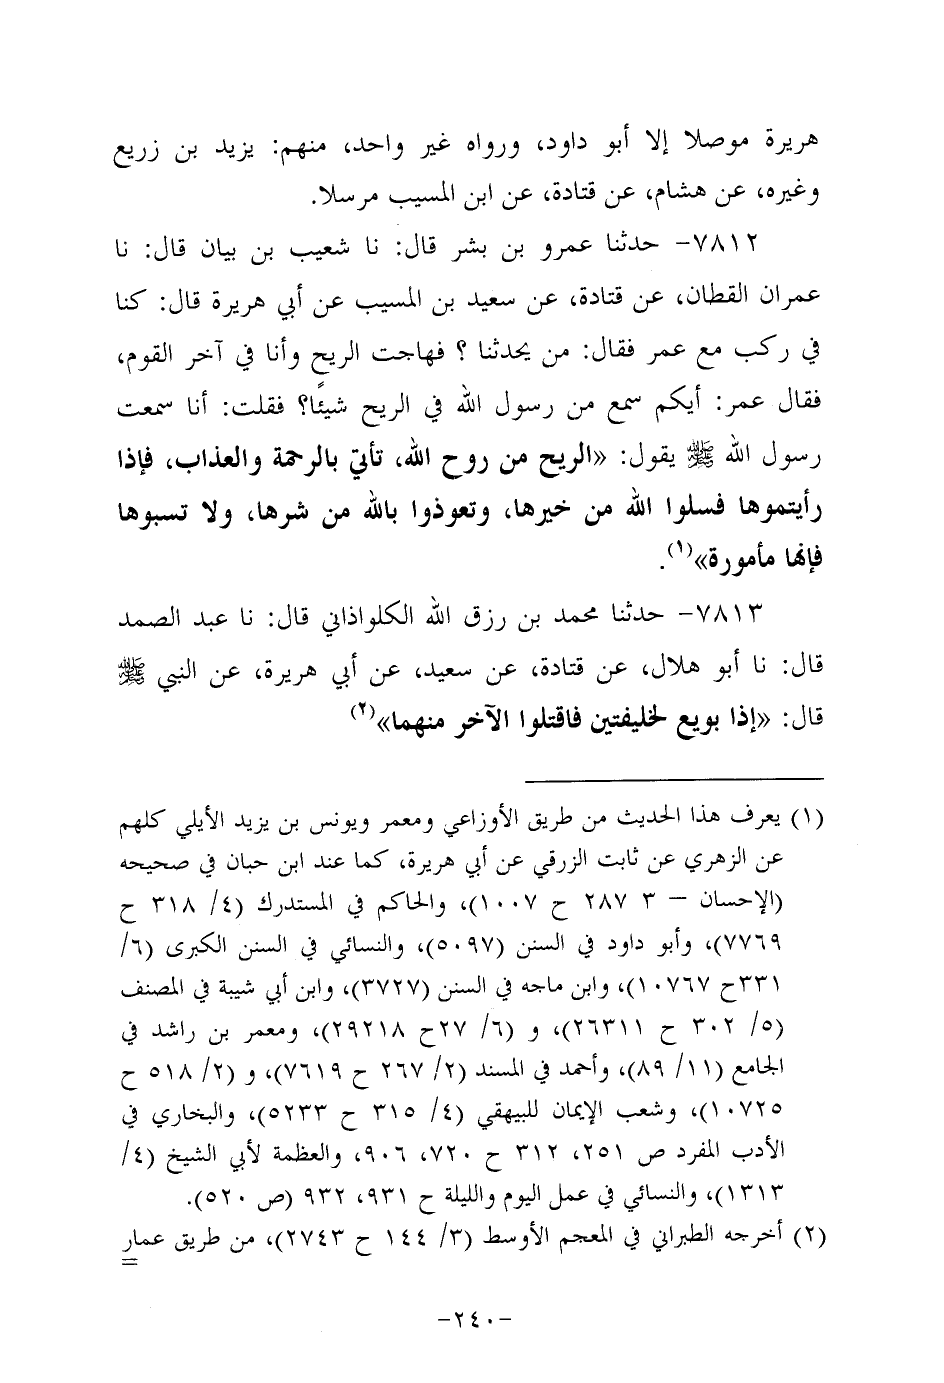 هريرة موصلا إلا أبو داود، ورواه غير واحد، منهم: يزيد بن زريع
وغيره، عن هشام، عن قتادة، عن ابن المسيب مرسلا.
٧٨١٢- حدثنا عمرو بن بشر قال: نا شعيب بن بيان قال: نا
عمران القطان، عن قتادة، عن سعيد بن المسيب عن أبي هريرة قال: كنا
في ركب مع عمر فقال: من يحدثنا ؟ فهاجت الريح وأنا في آخر القوم،
فقال عمر: أيكم سمع من رسول الله في الريح شيئًا؟ فقلت: أنا سمعت
رسول الله ﷺ يقول: «الريح من روح الله، تأتي بالرحمة والعذاب، فإذا
رأيتموها فسلوا الله من خيرها، وتعوذوا بالله من شرها، ولا تسبوها
فإنها مأمورة»(١).
٧٨١٣- حدثنا محمد بن رزق الله الكلواذاني قال: نا عبد الصمد
قال: نا أبو هلال، عن قتادة، عن سعيد، عن أبي هريرة، عن النبي ﷺ
قال: «إذا بويع لخليفتين فاقتلوا الآخر منهما»(٢)
(١) يعرف هذا الحديث من طريق الأوزاعي ومعمر ويونس بن يزيد الأيلي كلهم
عن الزهري عن ثابت الزرقي عن أبي هريرة، كما عند ابن حبان في صحيحه
(الإحسان – ٣ ٢٨٧ ح ١٠٠٧)، والحاكم في المستدرك (٤/ ٣١٨ ح
٧٧٦٩)، وأبو داود في السنن (٥٠٩٧)، والنسائي في السنن الكبرى (٦/
٣٣١ح ١٠٧٦٧)، وابن ماجه في السنن (٣٧٢٧)، وابن أبي شيبة في المصنف
(٥/ ٣٠٢ ح ٢٦٣١١)، و (٦/ ٢٧ح ٢٩٢١٨)، ومعمر بن راشد في
الجامع (١١/ ٨٩)، وأحمد في المسند (٢/ ٢٦٧ ح ٧٦١٩)، و (٢/ ٥١٨ ح
١٠٧٢٥)، وشعب الإيمان للبيهقي (٤/ ٣١٥ ح ٥٢٣٣)، والبخاري في
الأدب المفرد ص ٢٥١، ٣١٢ ح ٧٢٠، ٩٠٦، والعظمة لأبي الشيخ (٤/
١٣١٣)، والنسائي في عمل اليوم والليلة ح ٩٣١، ٩٣٢ (ص ٥٢٠).
(٢) أخرجه الطبراني في المعجم الأوسط (٣/ ١٤٤ ح ٢٧٤٣)، من طريق عمار
=
-٢٤٠-